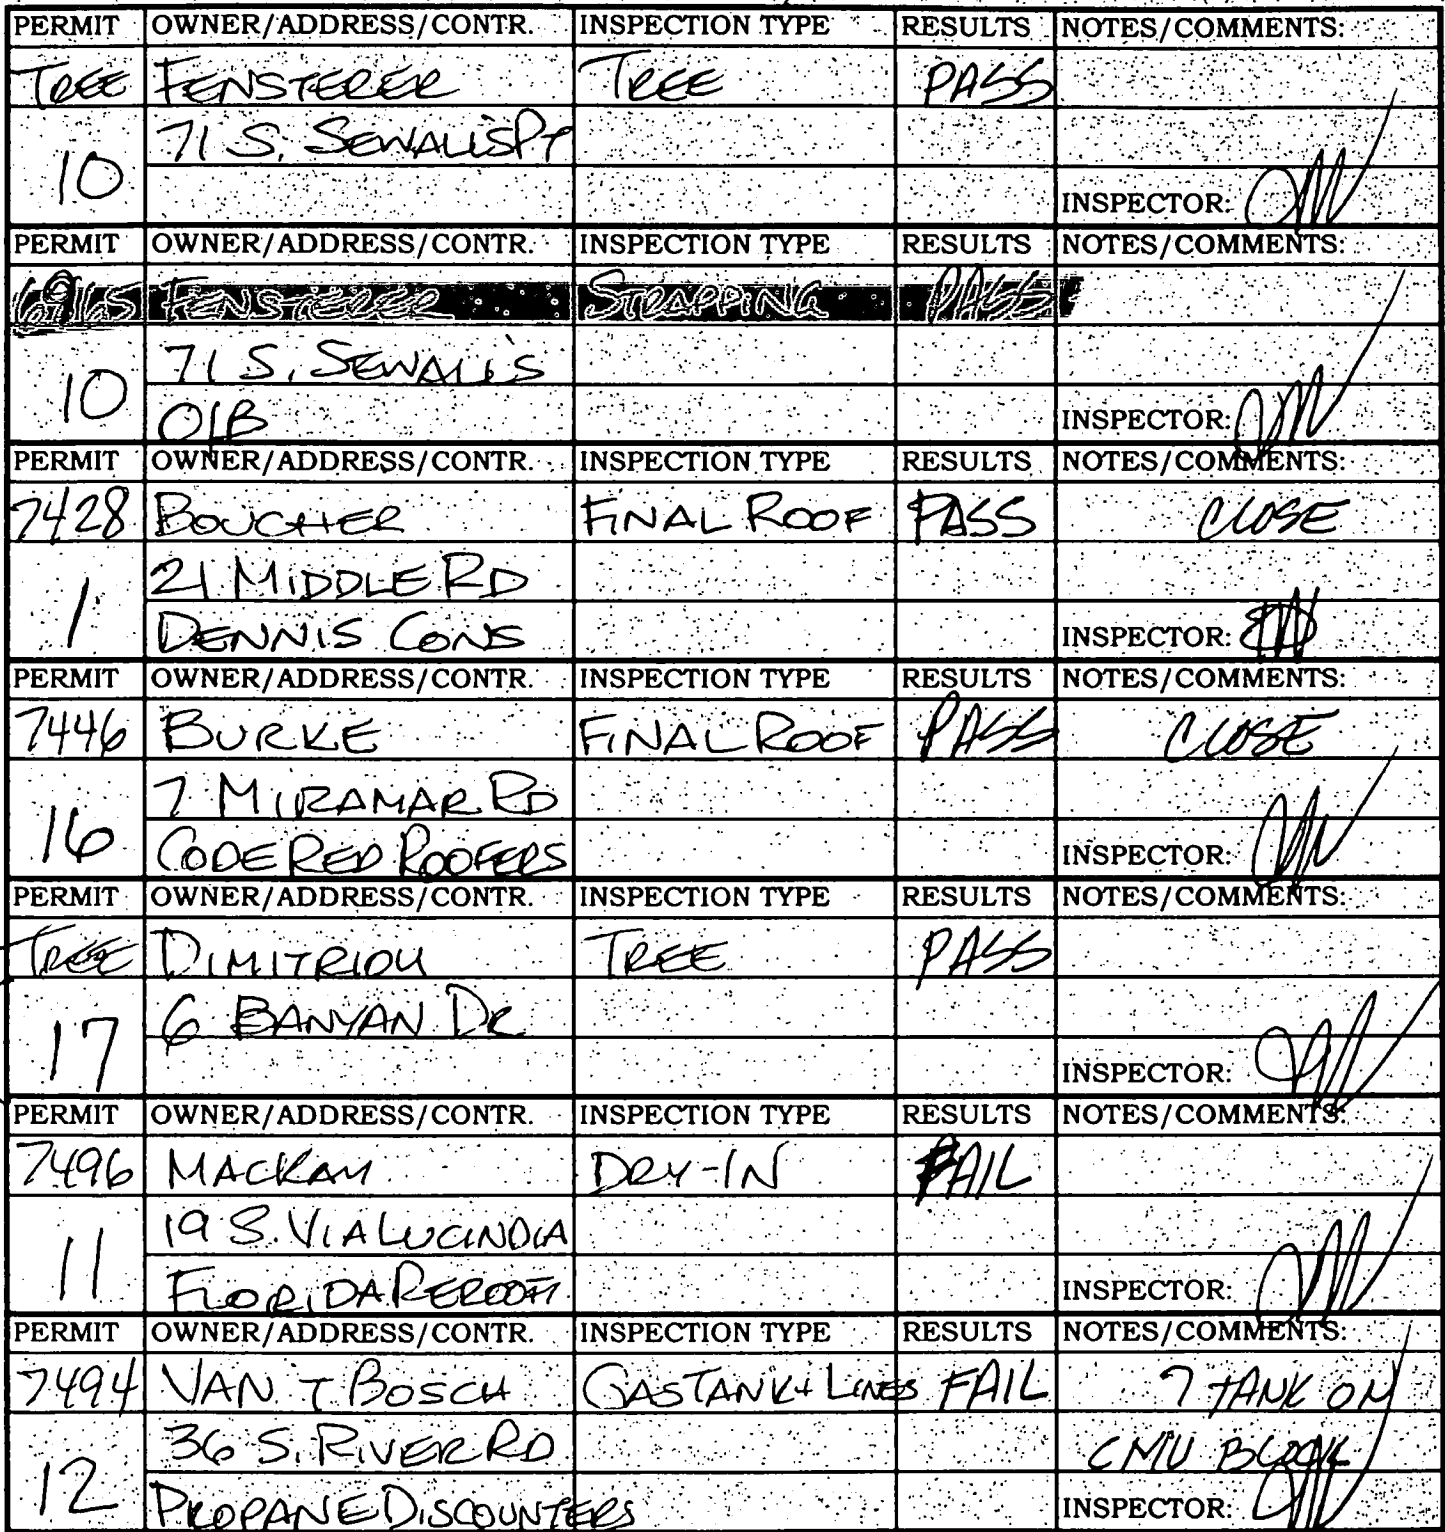 PERMIT OWNER/ADDRESS/CONTR. INSPECTION TYPE RESULTS NOTES/COMMENTS:
TREE FENSTERER TREE PASS
71 S. SEWALL'S PT
10 INSPECTOR:
PERMIT OWNER/ADDRESS/CONTR. INSPECTION TYPE RESULTS NOTES/COMMENTS:
6965 FENSTERER STRAPPING PASS
71 S. SEWALL'S
10 O/B INSPECTOR:
PERMIT OWNER/ADDRESS/CONTR. INSPECTION TYPE RESULTS NOTES/COMMENTS:
7428 BOUCHER FINAL ROOF PASS CLOSE
21 MIDDLE RD
1 DENNIS CONS INSPECTOR:
PERMIT OWNER/ADDRESS/CONTR. INSPECTION TYPE RESULTS NOTES/COMMENTS:
7446 BURKE FINAL ROOF PASS CLOSE
7 MIRAMAR RD
16 CODE RED ROOFERS INSPECTOR:
PERMIT OWNER/ADDRESS/CONTR. INSPECTION TYPE RESULTS NOTES/COMMENTS:
TREE DIMITRIOU TREE PASS
6 BANYAN DR
17 INSPECTOR:
PERMIT OWNER/ADDRESS/CONTR. INSPECTION TYPE RESULTS NOTES/COMMENTS:
7496 MACKAY DRY-IN FAIL
19 S. VIA LUCINDIA
11 FLORIDA REROOF INSPECTOR:
PERMIT OWNER/ADDRESS/CONTR. INSPECTION TYPE RESULTS NOTES/COMMENTS:
7494 VAN T BOSCH GAS TANK + LINES FAIL ? TANK ON
36 S. RIVER RD CMU BLOCK
12 PROPANE DISCOUNTERS INSPECTOR: